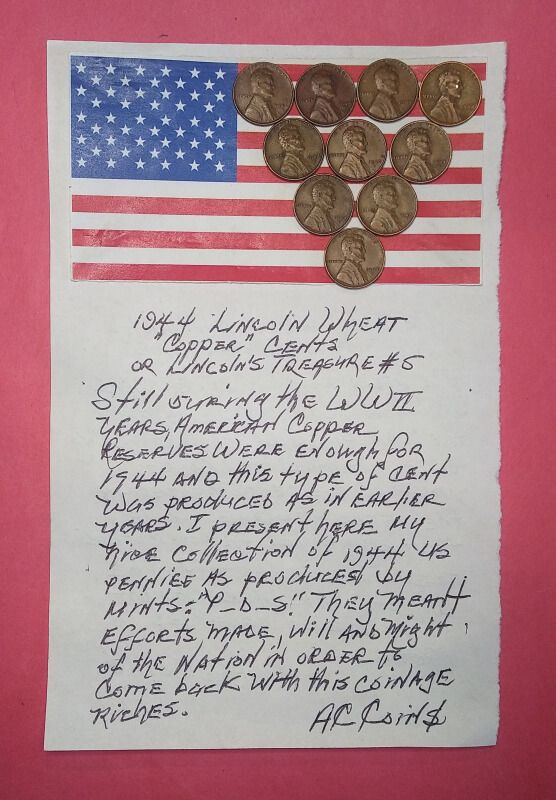 1944 LINCOLN WHEAT
"COPPER" CENTS
OR LINCOLN'S TREASURE #5
Still during the WWII
YEARS, AMERICAN COPPER
RESERVES WERE ENOUGH FOR
1944 AND this type of CENT
WAS PRODUCED AS IN EARLIER
YEARS. I PRESENT HERE MY
NICE COLLECTION OF 1944 US
PENNIES AS PRODUCED by
MINTS: "P_D_S!" They MEANT
EFFORTS MADE, Will AND Might
of the NATION IN ORDER to
COME back With this COINAGE
RICHES.
AC COIN$